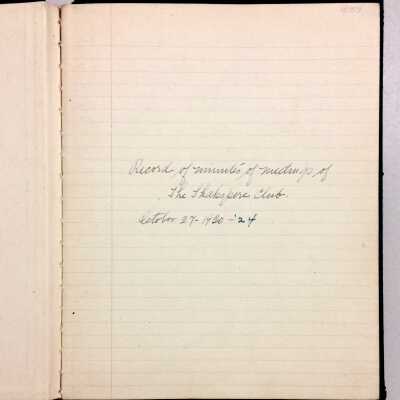 Record of minutes of meetings of
The Shakspere Club.
October 27 - 1920 - '24